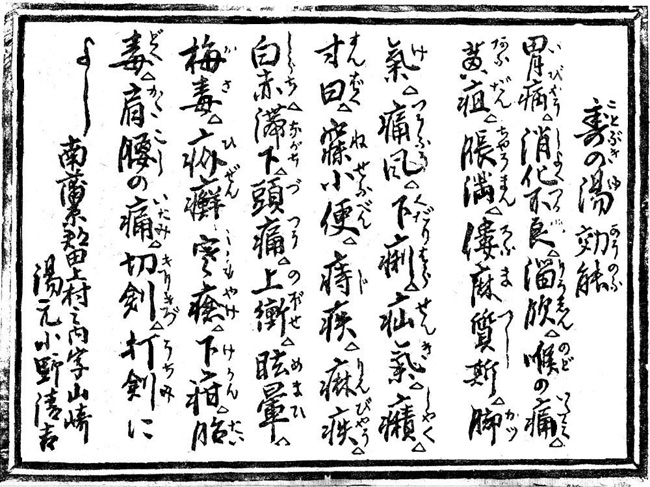 寿の湯効能
胃病△消化不良△溜飲△喉の痛△
黄疸△脹満△僂麻質斯△脚
氣△痛風△下痢△疝氣△癪△
寸白△寐小便△痔疾△痳疾△
白赤滞下△頭痛△上衝△眩暈△
梅毒△疥癬△寒瘧△下疳△胎
毒△肩腰の痛△切創△打創に
よし
南蒲原郡田上村之内字山崎
湯元小野清吉